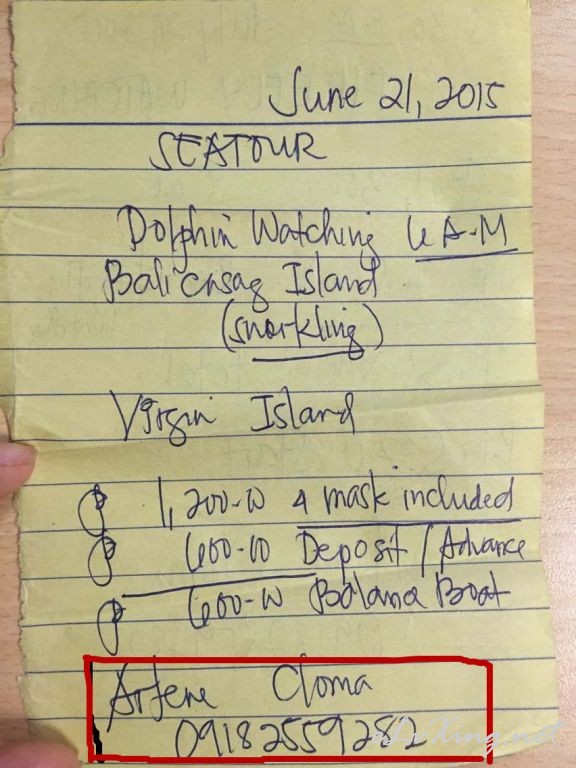 June 21, 2015
SEATOUR
Dolphin Watching 6 A-M
Balicasag Island
(snorkling)
Virgin Island
₱ 1,200-00 4 mask included
₱ 600-00 Deposit / Advance
₱ 600-00 Balance Boat
Arlene Cloma
09182559282